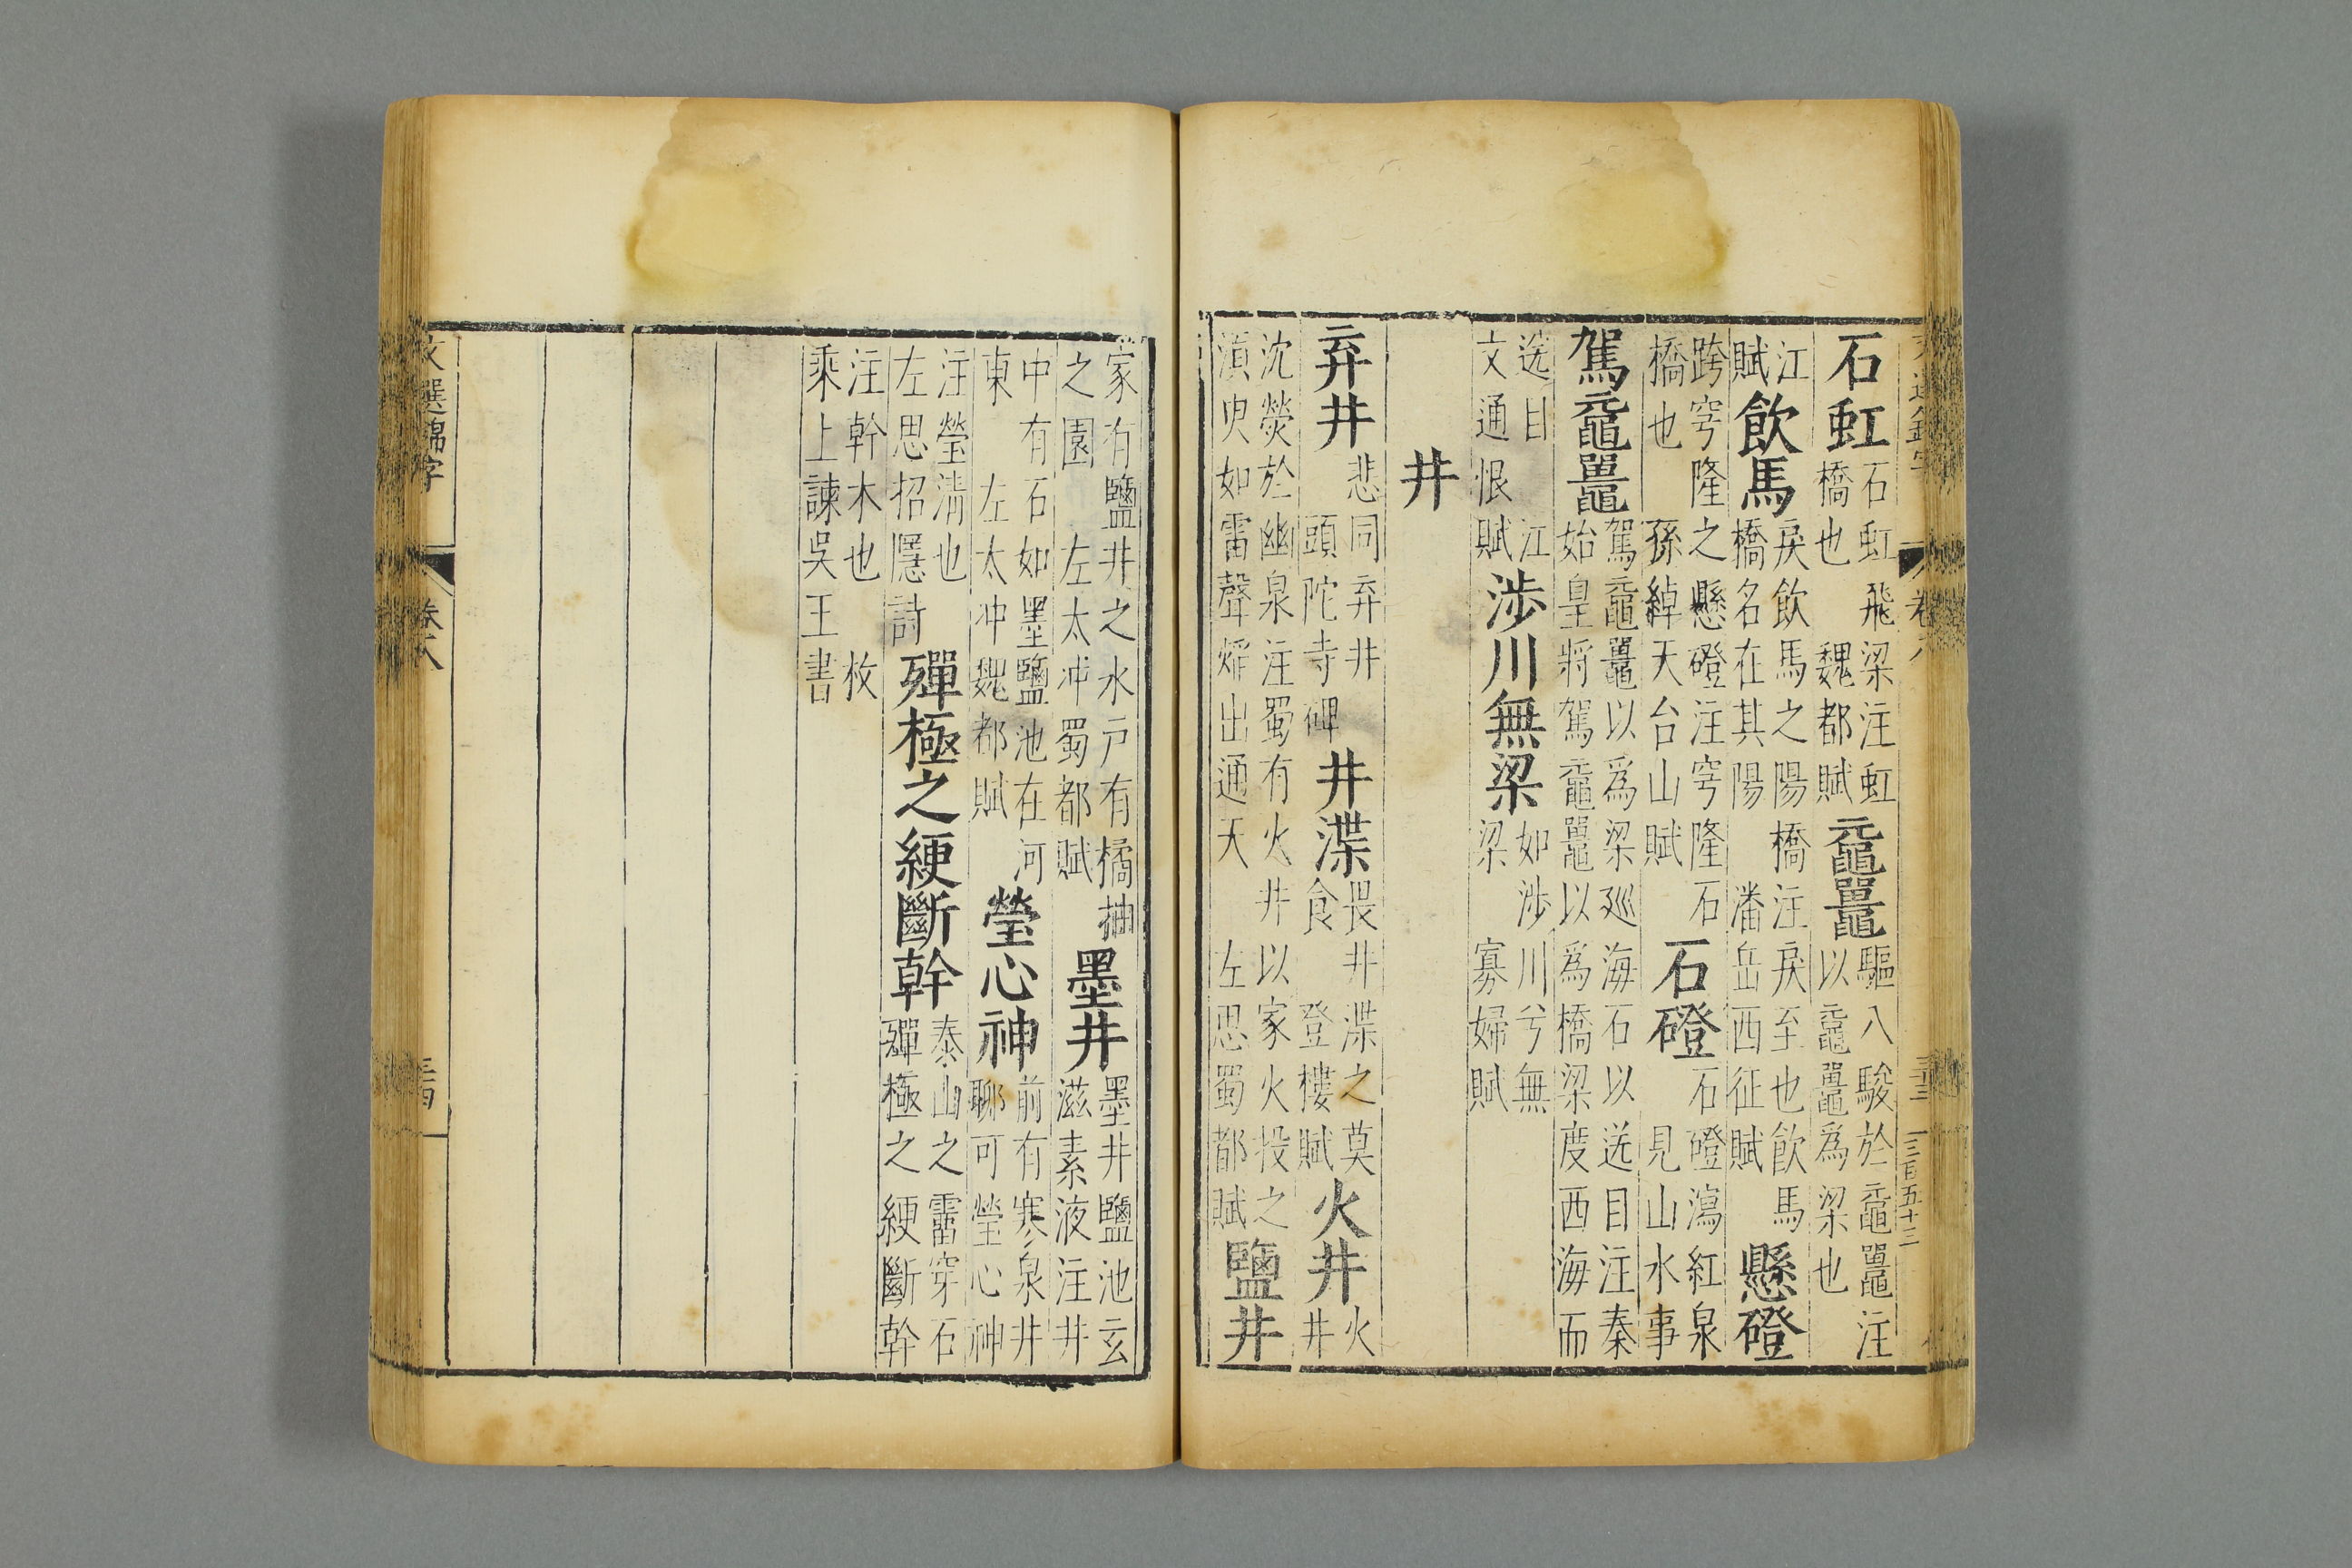 文選錦字 卷八 三百五十三
石虹石虹飛梁注虹橋也 魏都賦黿鼉驅八駿於黿鼉注以黿鼉爲梁也
江賦飲馬戾飲馬之陽橋注戾至也飲馬橋名在其陽 潘岳西征賦懸磴
跨穹隆之懸磴注穹隆石橋也 孫綽天台山賦石磴石磴瀉紅泉見山水事
駕黿鼉駕黿鼉以爲梁廵海石以送目注秦始皇將駕黿鼉以爲橋梁度西海而
送目 江文通恨賦涉川無梁如涉川兮無梁 寡婦賦
井
弃井悲同弃井頭陀寺碑井渫畏井渫之莫食 登樓賦火井火井
沈熒於幽泉注蜀有火井以家火投之湏臾如雷聲爓出通天 左思蜀都賦鹽井
家有鹽井之水戸有橘柚之園 左太冲蜀都賦墨井墨井鹽池玄滋素液注井
中有石如墨鹽池在河東 左太冲魏都賦瑩心神前有寒泉井聊可瑩心神
注瑩清也左思招隱詩殫極之綆斷幹泰山之霤穿石殫極之綆斷幹
注幹木也 枚乘上諫吳王書
文選錦字 卷八